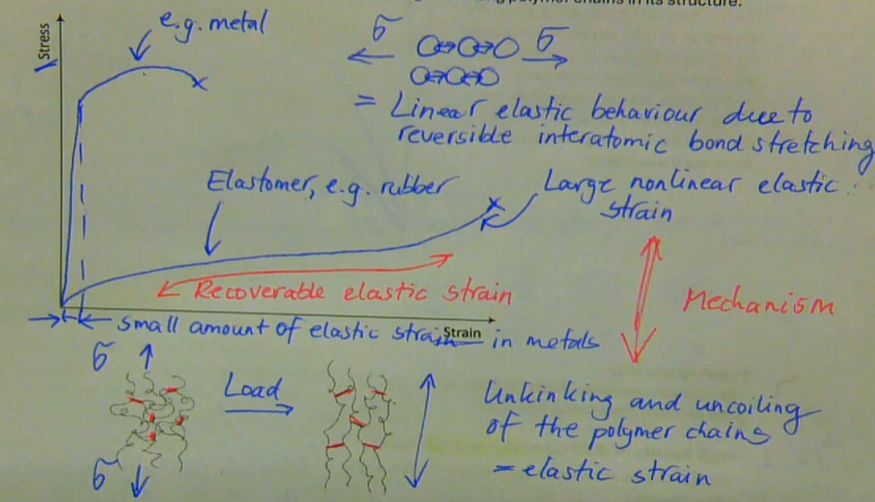 long polymer chains in its structure.
Stress
e.g. metal
σ
σ
= Linear elastic behaviour due to
reversible interatomic bond stretching
Elastomer, e.g. rubber
Large nonlinear elastic
strain
Recoverable elastic strain
Mechanism
Strain
small amount of elastic strain in metals
σ
Load
σ
Unkinking and uncoiling
of the polymer chains
= elastic strain